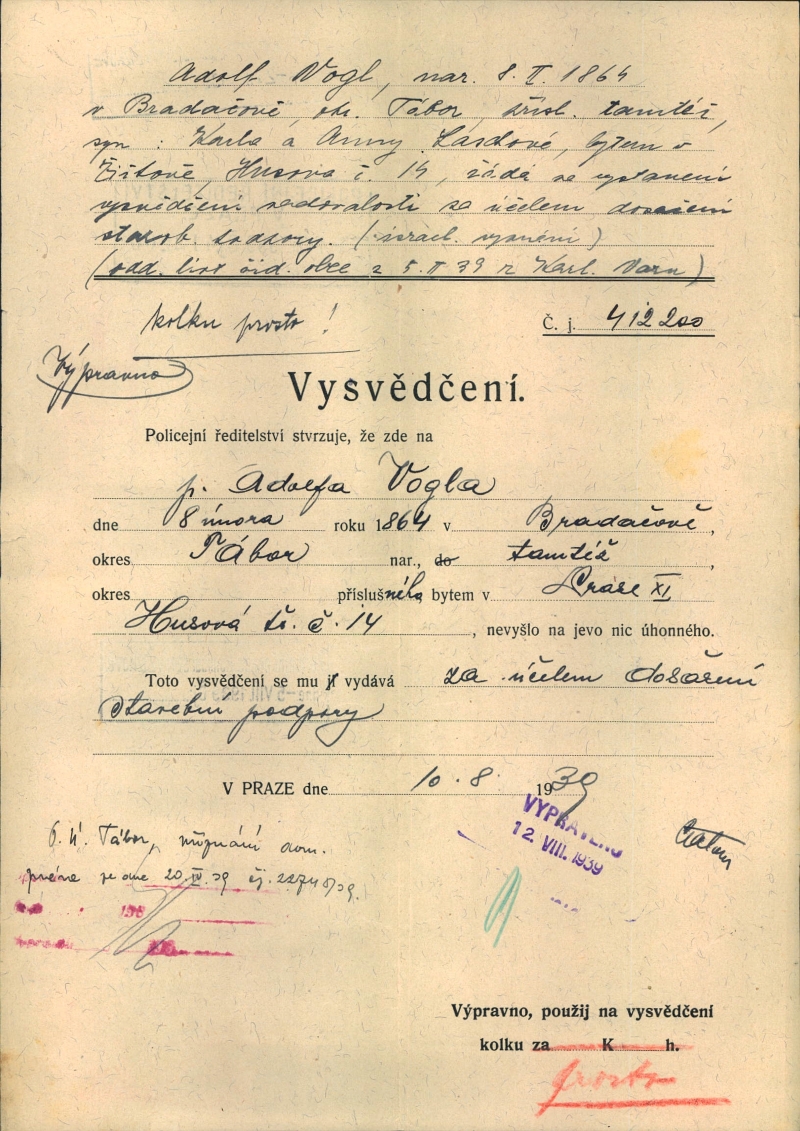 Adolf Vogl, nar. 8. II. 1864
v Bradačově, okr. Tábor, přísl. tamtéž,
syn : Karla a Anny, bytem v
Husova č. 14, žádá za vystavení
vysvědčení zachovalosti za účelem dosažení
starob. podpory. (israel. vyznání)
(odd. list žid. obce z 5. II 39 z Karl. Varů)
kolku prosto !
Č. j. 412200
Výpravno
Vysvědčení.
Policejní ředitelství stvrzuje, že zde na
p. Adolfa Vogla
dne 8 února roku 1864 v Bradačově,
okres Tábor nar., do tamtéž,
okres příslušného bytem v Praze XI,
Husová tř. č. 14, nevyšlo na jevo nic úhonného.
Toto vysvědčení se mu jí vydává za účelem dosažení
podpory
V PRAZE dne 10. 8. 1939
VYPRAVENO
12. VIII. 1939
O. ú. Tábor, přiznání dom.
práva ze dne 20. IV. 39 čj.
Výpravno, použij na vysvědčení
kolku za K h.
prosto